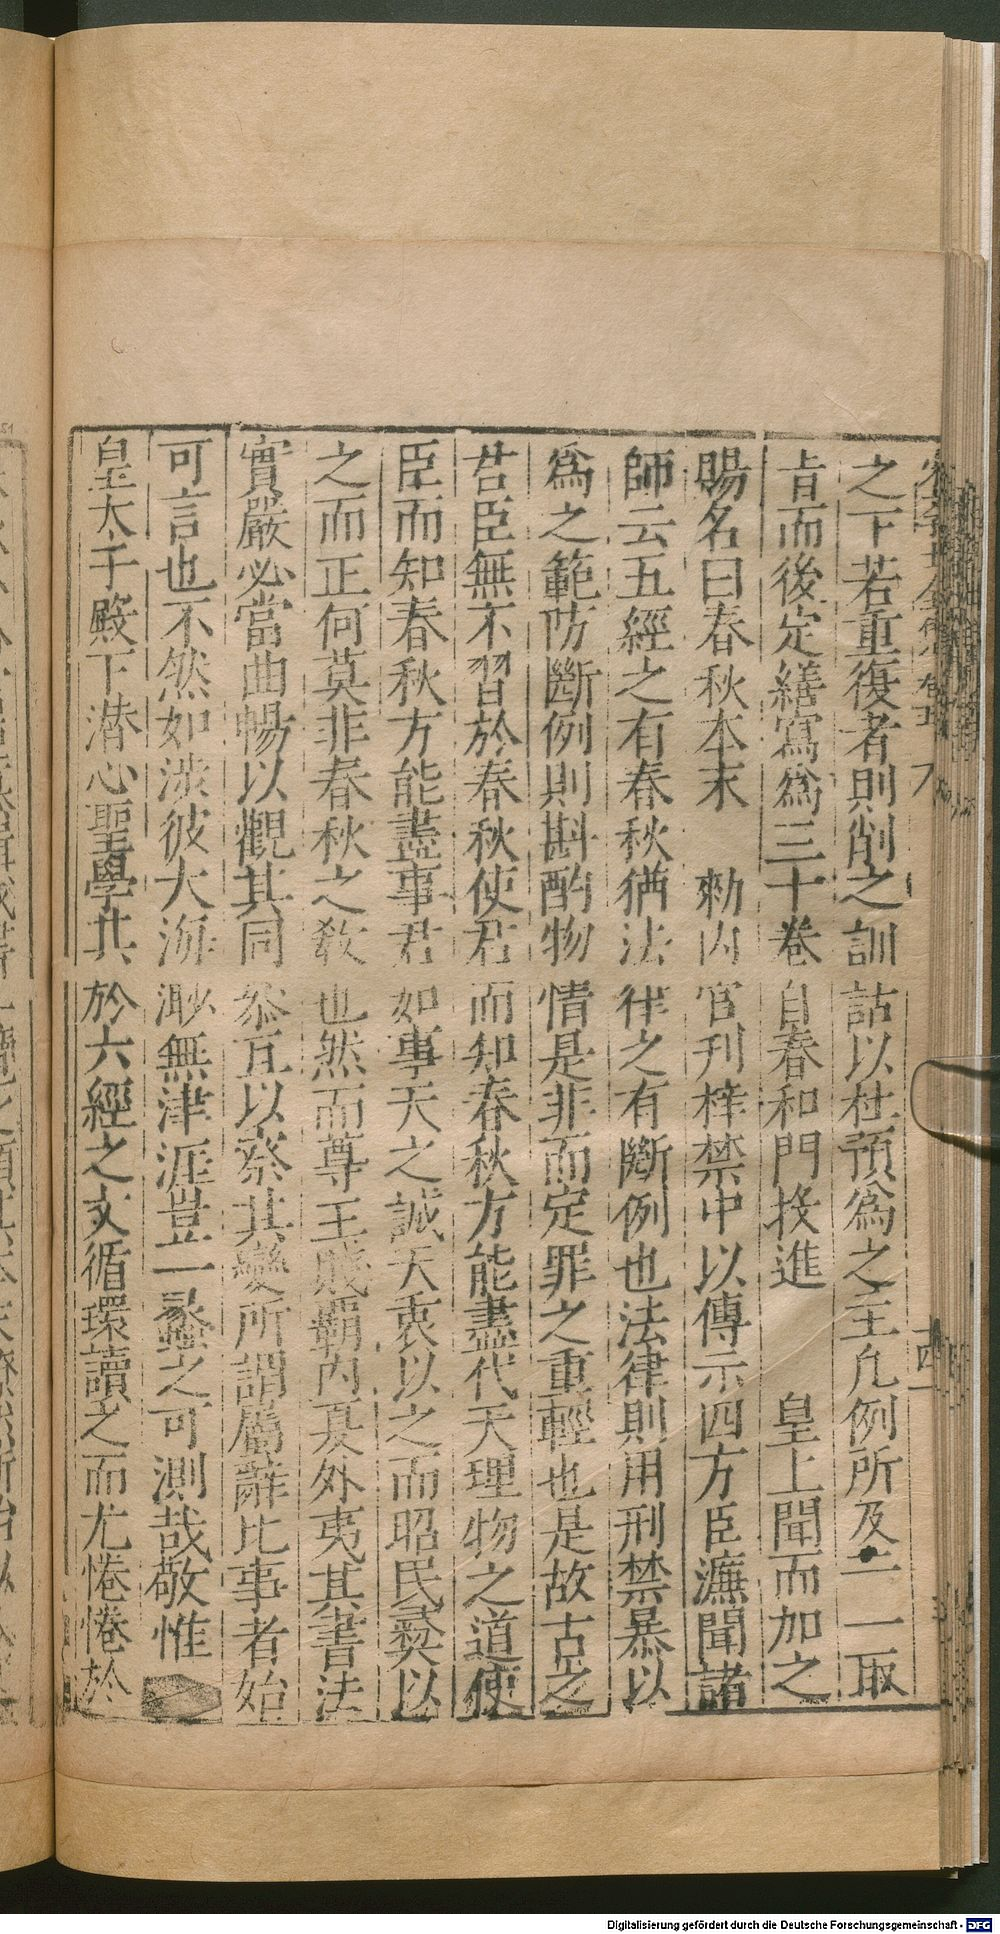 之下若重復者則削之訓詁以杜預爲之主凡例所及一一取
旨而後定繕寫爲三十巻自春和門投進　皇上聞而加之
賜名曰春秋本末　勑内官刋梓禁中以傳示四方臣濂聞諸
師云五經之有春秋猶法律之有斷例也法律則用刑禁暴以
爲之範防斷例則斟酌物情是非而定罪之重輕也是故古之
君臣無不習於春秋使君而知春秋方能盡代天理物之道使
臣而知春秋方能盡事君如事天之誠天衷以之而昭民彛以
之而正何莫非春秋之教也然而尊王賤覇内夏外夷其書法
實嚴必當曲暢以觀其同叅互以察其變所謂屬辭比事者始
可言也不然如涉彼大海渺無津涯豈一蠡之可測哉敬惟
皇太子殿下潜心聖學其於六經之文循環讀之而尤惓惓於
四
Digitalisierung gefördert durch die Deutsche Forschungsgemeinschaft - DFG